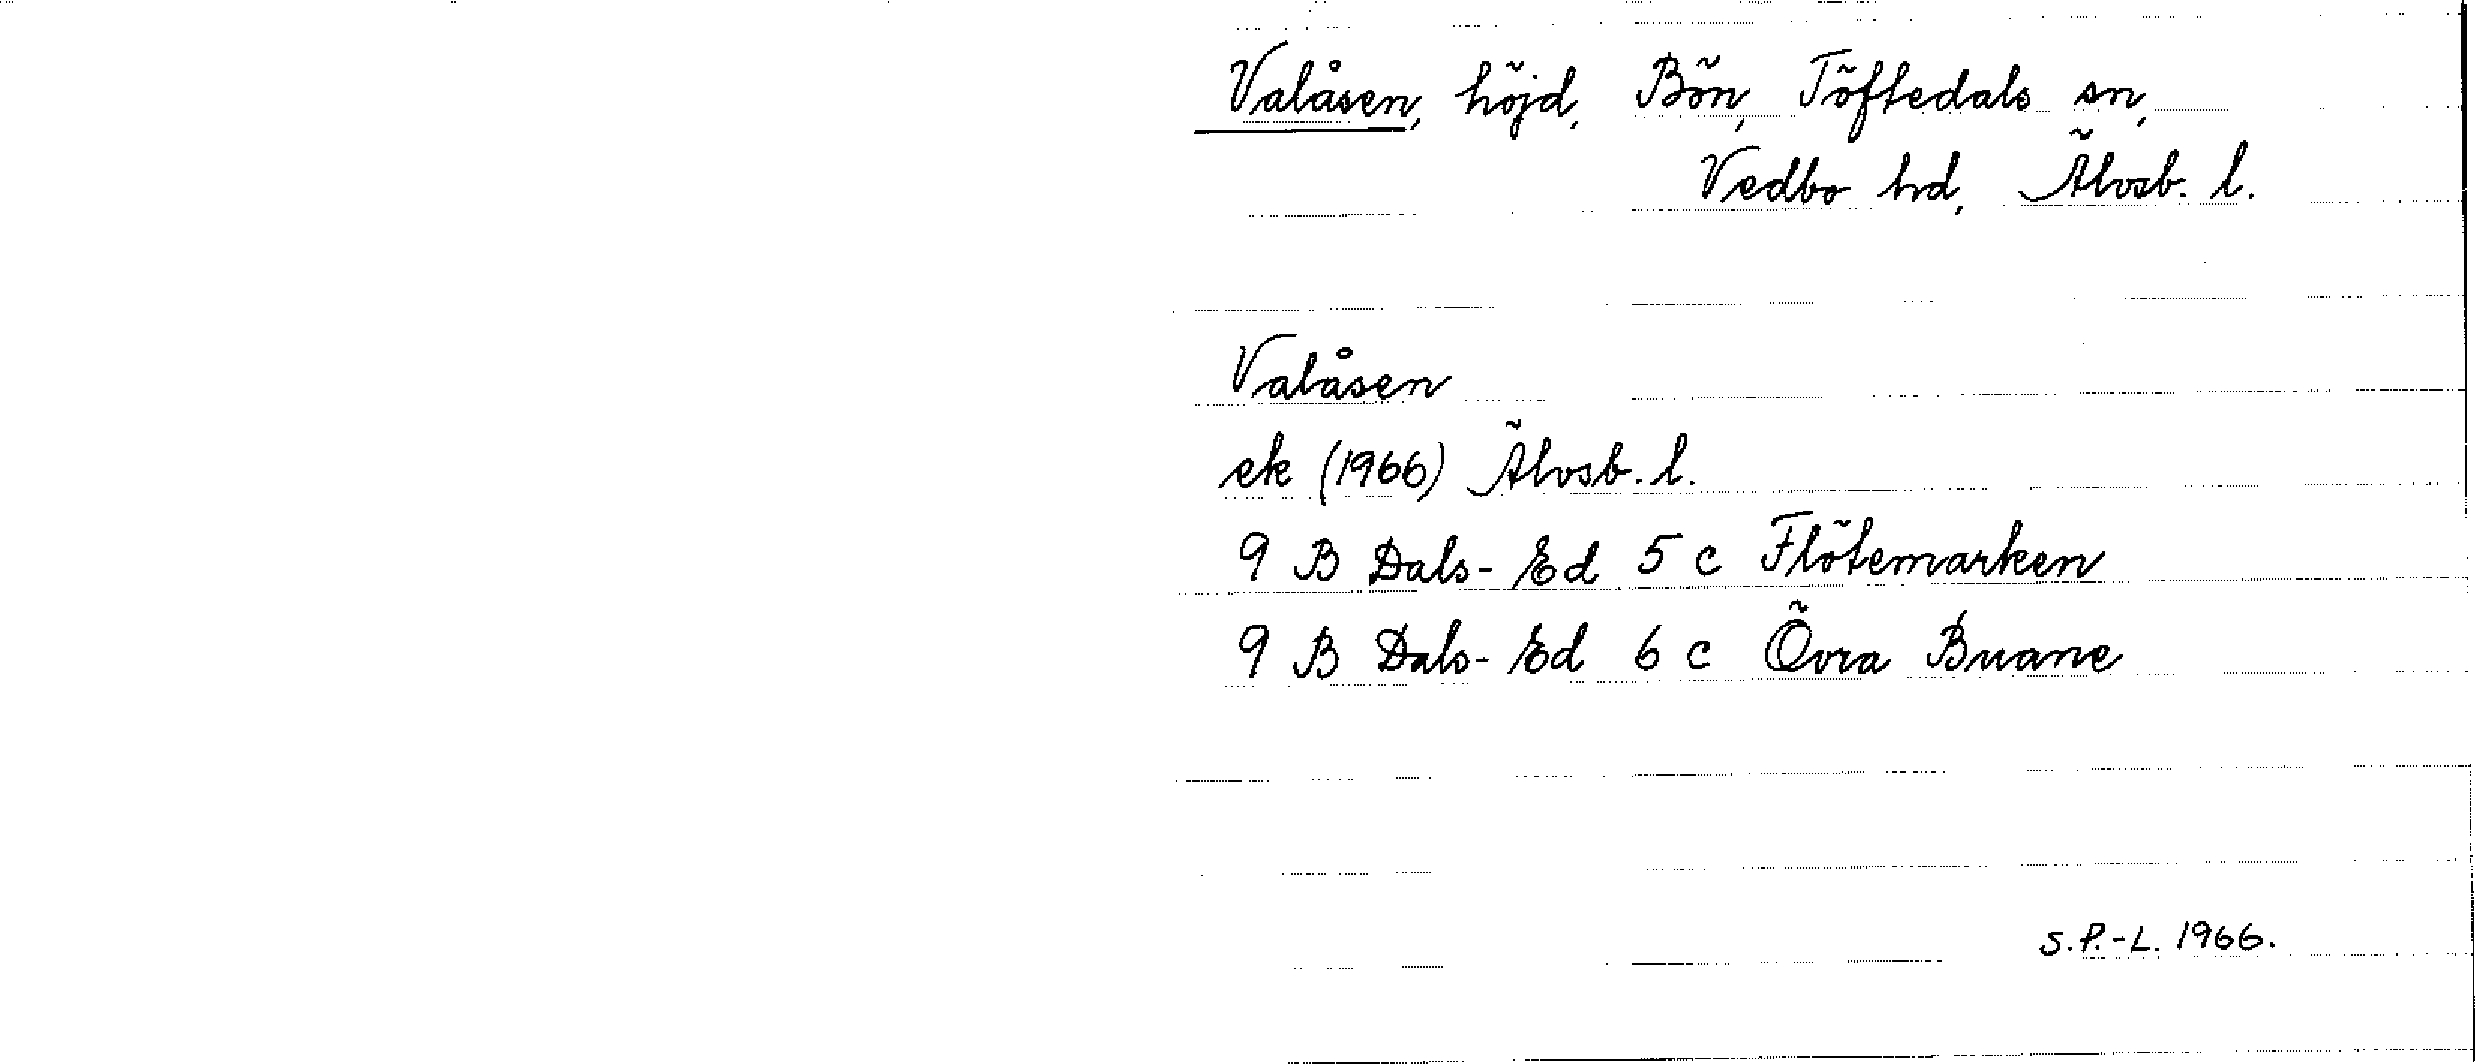 Valåsen, höjd, Bön, Töftedals sn,
Vedbo hd, Älvsb. l.
Valåsen
ek (1966) Älvsb. l.
9 B Dals-Ed 5 c Flötemarken
9 B Dals-Ed 6 c Övra Buane
S.P.-L. 1966.